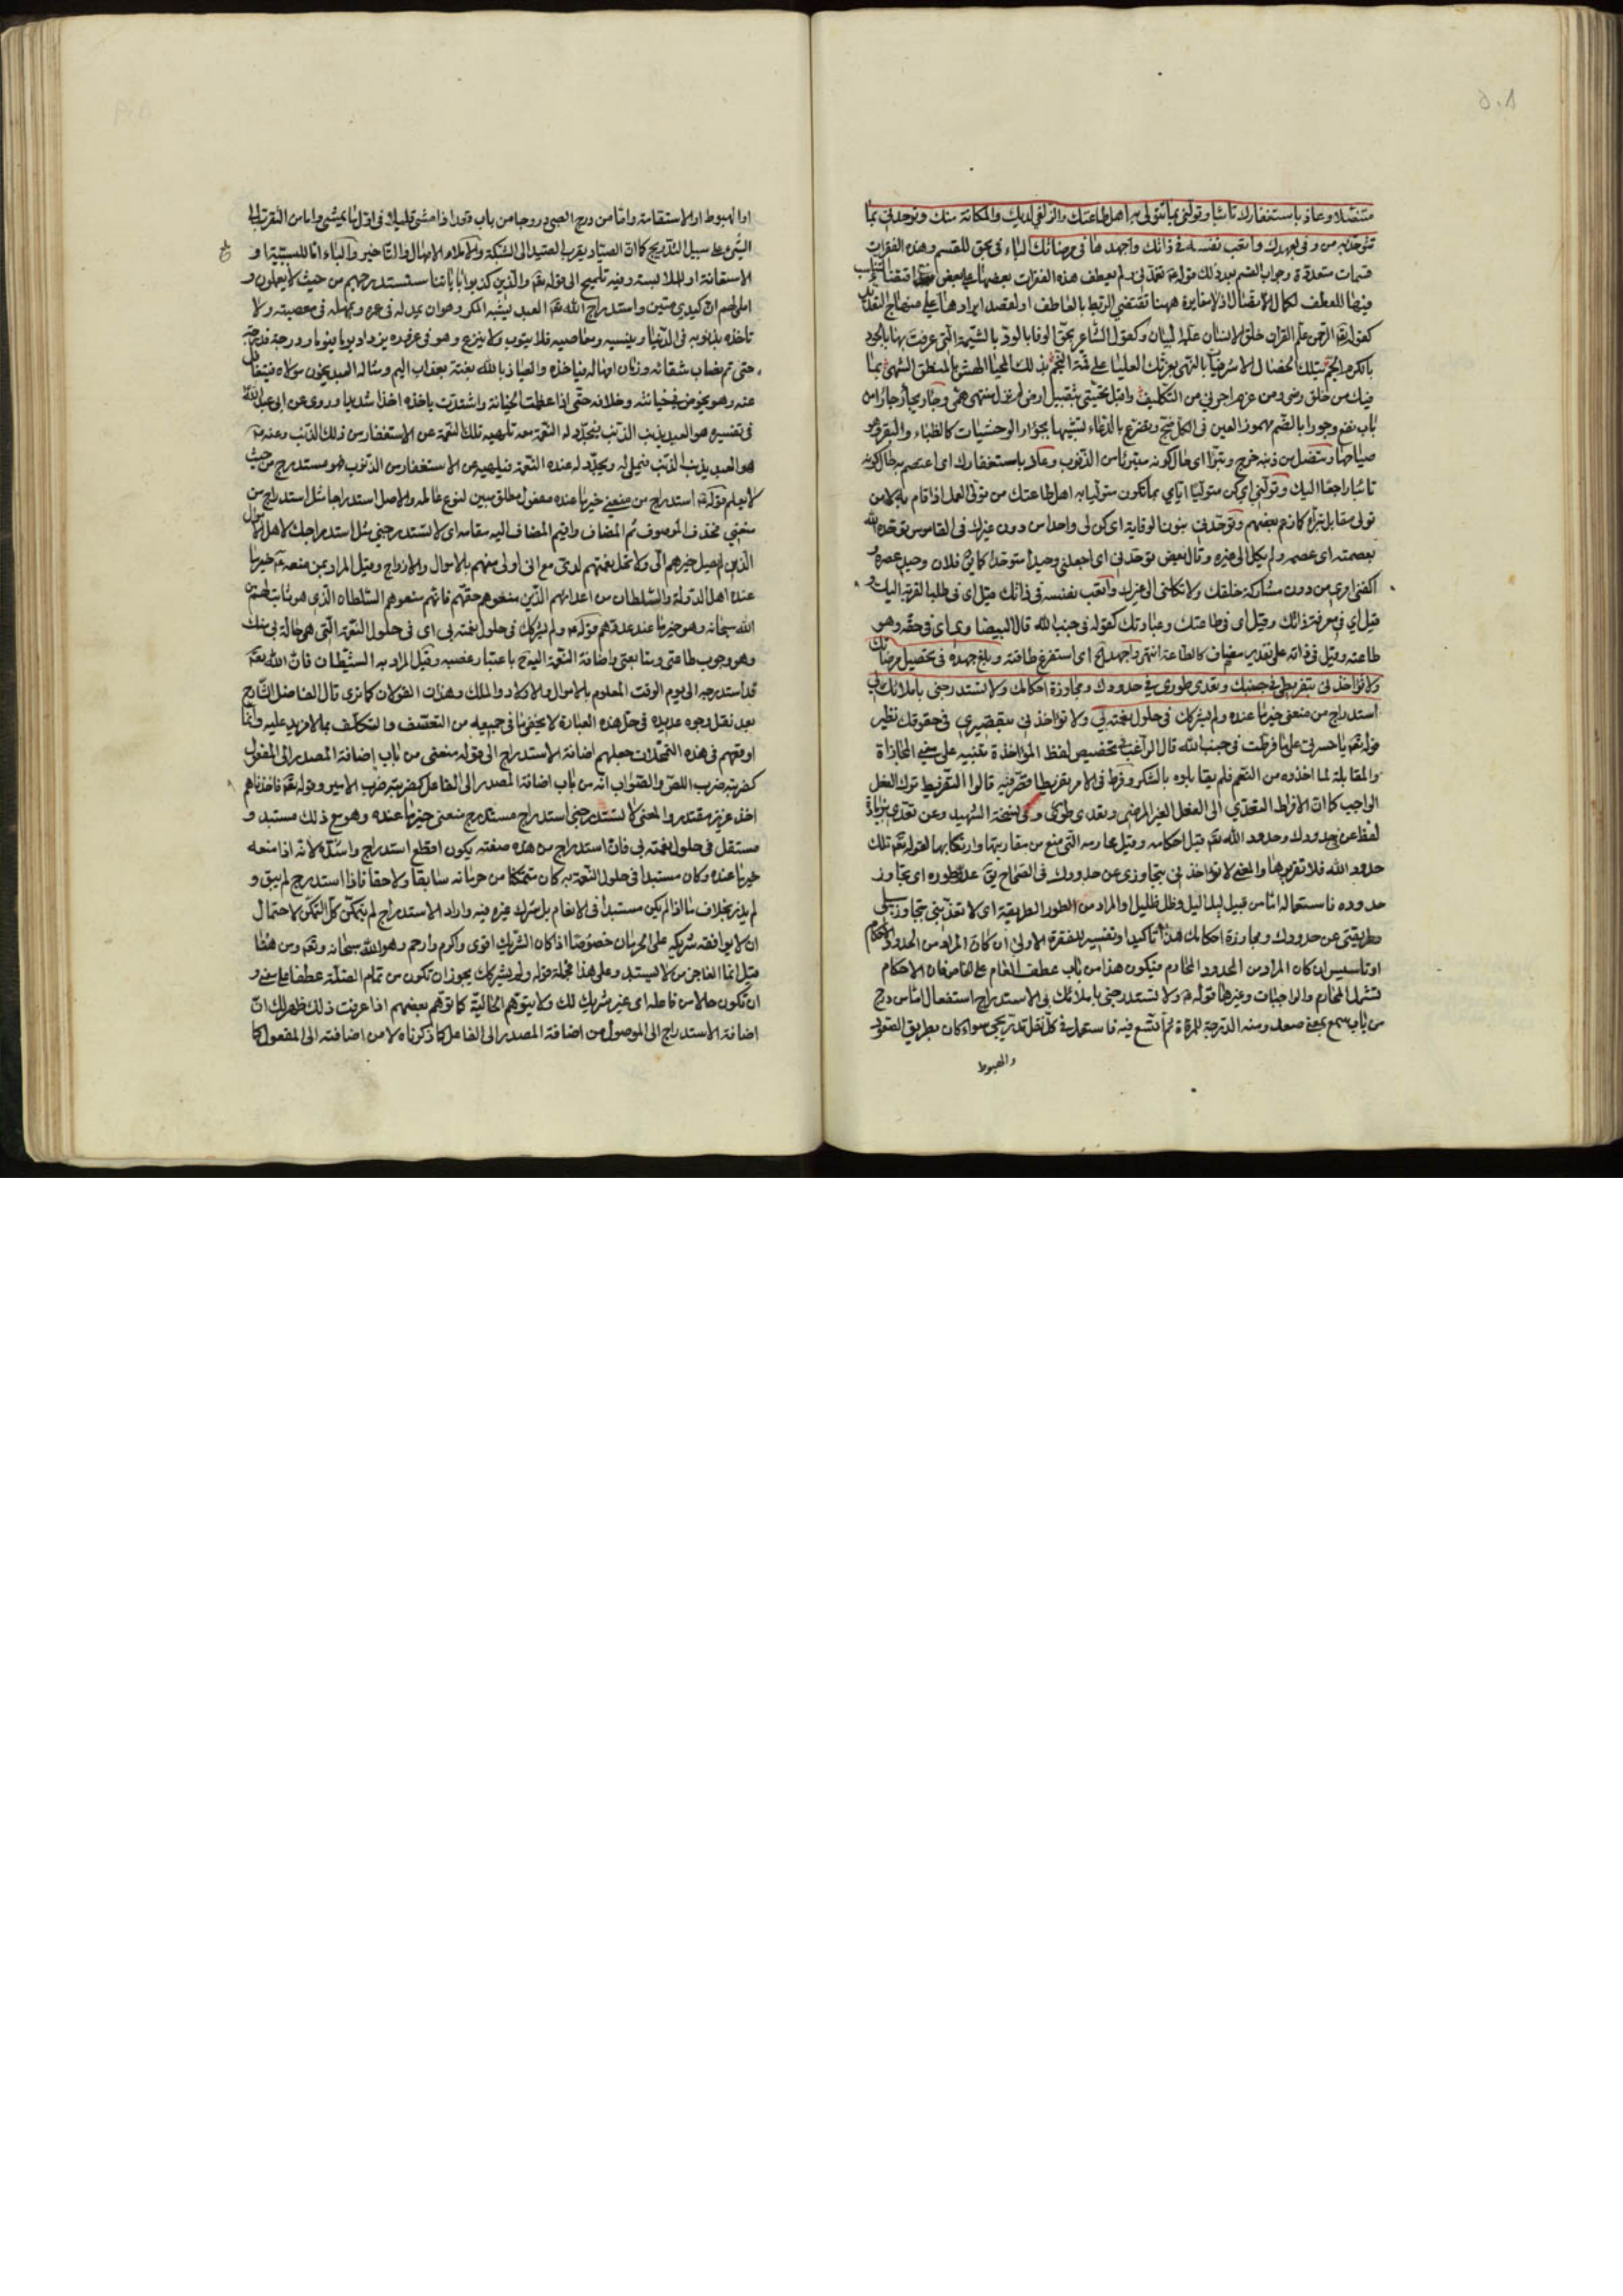 متنصلا وعاذ باستغفارك تائبا وتولني بما تتولى به اهل طاعتك والزلفى لديك والمكانة منك وتوحدني بما
تتوحد به من وفى بعهدك واتعب نفسه في ذاتك واجهدها في مرضاتك الباء في بحق للقسم وهذه الفقرات
قسمات متعددة وجواب القسم بعد ذلك قوله تغمدني ولم يعطف هذه الفقرات بعضها على بعض
فيها للعطف لكمال الاتصال اذ لا مغايرة ههنا تقتضي الربط بالعاطف او لقصد ايرادها على منهاج التعديد
كقوله تعالى الرحمن علم القران خلق الانسان علمه البيان وكقول الشاعر بحق الوفا بالود بالشيمة التي عرفت بها بالجود
بالكرم الجم بتلك
فيك من خلق رضي ومن
باب نفع وجورا بالضم مهموز العين في الكل ضج وتضرع بالدعاء تشبيها بجؤار الوحشيات كالظباء والبقر وهو
صياحها وتنصل من ذنبه خرج وتبرا اي حال كونه متبرئا من الذنوب وعاذ باستغفارك اي اعتصم به حال كونه
تائبا راجعا اليك وتولني اي كن متوليا اياي بما تكون متوليا به اهل طاعتك من تولى العمل اذا قام به لا من
تولى مقابل تبرأ كما زعم بعضهم وتوحدني بنون الوقاية اي كن لي واحدا من دون غيرك في القاموس توحده الله
بعصمته اي عصمه ولم يكله الى غيره وقال بعض توحدني اي اجعلني وحيدا متوحدا كما يق فلان وحيد عصره و
اكفني امري من دون مشاركة خلقك ولا تكلني الى غيرك واتعب نفسه في ذاتك قيل اي في طلب القربة اليك و
قيل اي في معرفة ذاتك وقيل اي في طاعتك وعبادتك كقوله في جنب الله قال البيضاوي اي في حقه وهو
طاعته وقيل في ذاته على تقدير مضاف كالطاعة انتهى واجهد الخ اي استفرغ طاقته وبلغ جهده في تحصيل مرضاتك
ولا تؤاخذني بتفريطي في جنبك وتعدي طوري في حدودك ومجاوزة احكامك ولا تستدرجني باملائك لي
استدراج من منعني خير ما عنده ولم يشركك في حلول نعمته بي ولا تؤاخذني بتقصيري في حقوقك نظير
قوله تعالى يا حسرتى على ما فرطت في جنب الله قال الراغب تخصيص لفظ المؤاخذة تنبيه على معنى المجازاة
والمقابلة لما اخذوه من النعم فلم يقابلوه بالشكر وفرط في الامر تفريطا قصر فيه قالوا التفريط ترك الفعل
الواجب كما ان الافراط التعدي الى الفعل الغير المرضي وتعدى طوري وفي نسخة الشهيد وعن تعدي بزيادة
لفظ عن حدودك وحدود الله تعالى قيل احكامه وقيل محارمه التي منع من مقاربتها وارتكابها لقوله تعالى تلك
حدود الله فلا تقربوها والمعنى لا تؤاخذني بتجاوزي عن حدودك في الصحاح يق عدا طوره اي تجاوز
حدوده فاستعماله اما من قبيل ليل اليل وظل ظليل او المراد من الطور الطريقة اي لا تعذبني بتجاوز سبيلي
وطريقتي عن حدودك ومجاوزة احكامك هذا تاكيدا وتفسير للفقرة الاولى ان كان المراد من الحدود الاحكام
او تاسيس ان كان المراد من الحدود المحارم فيكون هذا من باب عطف العام على الخاص فان الاحكام
تشمل المحارم والواجبات وغيرها قوله ولا تستدرجني باملائك لي الاستدراج استفعال اما من درج
من باب سمع بمعنى صعد ومنه الدرجة للمرقاة ثم اتسع فيه فاستعمل في كل نقل تدريجي سواء كان بطريق الصعود
والهبوط
او الهبوط او الاستقامة واما من درج الصبي دروجا من باب قعد اذا مشى قليلا في اول ما يمشي واما من التقرب الى
الشيء على سبيل التدريج كما ان الصياد يقرب الصيد الى الشبكة والاملاء الامهال والتاخير والباء اما للسببية او
الاستعانة او الملابسة وفيه تلميح الى قوله تعالى والذين كذبوا باياتنا سنستدرجهم من حيث لا يعلمون و
املي لهم ان كيدي متين واستدراج الله تعالى العبد يشبه المكر وهو ان يمد له في عزه ويمهله في معصيته ولا
تاخذه بذنوبه في الدنيا وينسيه ومعاصيه فلا يتوب ولا ينزع وهو في غرة يزداد يوما فيوما
حتى تم نصاب شقائه وزمان امهاله فياخذه والعياذ بالله بغتة بعذاب اليم ومثاله العبد يخون مولاه فيتغافل
عنه وهو يخوض في خيانته وخلافه حتى اذا عظمت الخيانة واشتدت ياخذه اخذا شديدا وروي عن ابي عبد الله
في تفسيره هو العبد يذنب الذنب فيجدد له النعمة معه تلهيه تلك النعمة عن الاستغفار من ذلك الذنب وعنه
هو العبد يذنب الذنب فيملي له ويجدد له عنده النعمة فيلهيه عن الاستغفار من الذنوب فهو مستدرج من حيث
لا يعلم قوله استدراج من منعني خير ما عنده مفعول مطلق مبين لنوع عامله والاصل استدراجا مثل استدراج من
منعني فحذف الموصوف ثم المضاف واقيم المضاف اليه مقامه اي لا تستدرجني مثل استدراجك لاهل الاموال
الذين لم يصل خيرهم الي ولا تحل نعمتهم لدي مع اني اولى منهم بالاموال والازواج وقيل المراد بمن منعه خير ما
عنده اهل الدولة والسلطان من اعدائهم الذين منعوهم حقهم فانهم منعوهم السلطان الذي هو ثابت لهم من
الله سبحانه وهو خير ما عند عدوهم قوله ولم يشركك في حلول نعمته بي اي في حلول النعمة التي هي حالة بي منك
وهو وجوب طاعتي ومتابعتي واضافة النعمة اليه باعتبار غصبه وقيل المراد به الشيطان فان الله تعالى
قد استدرجه الى يوم الوقت المعلوم بالاموال والاولاد والملك وهذان القولان كما ترى قال الفاضل الشارح
بعد نقل وجوه عديدة في حل هذه العبارة لا يخفى ما في جميعه من التعسف والتكلف بما لا مزيد عليه وانما
اوقعهم في هذه التمحلات جعلهم اضافة الاستدراج الى قوله منعني من باب إضافة المصدر الى المفعول
كضربته ضرب اللص والصواب انه من باب اضافة المصدر الى الفاعل كضربته ضرب الامير وقوله تعالى فاخذناهم
اخذ عزيز مقتدر والمعنى لا تستدرجني استدراج مستدرج منعني خير ما عنده وهو مع ذلك مستبد و
مستقل في حلول نعمته بي فان استدراج من هذه صفته يكون افظع استدراج واشده لانه اذا منعه
خير ما عنده وكان مستبدا في حلول النعمة به كان متمكنا من حرمانه سابقا ولاحقا فاذا استدرج لم يبق و
لم يذر بخلاف ما اذا لم يكن مستبدا في الانعام بل شرك غيره فيه واراد الاستدراج لم يتمكن كل التمكن لاحتمال
ان لا يوافقه شريكه على الحرمان خصوصا اذا كان الشريك اقوى واكرم وارحم وهو الله سبحانه وتعالى ومن هنا
قيل انما العاجز من لا يستبد وعلى هذا فجملة قوله ولم يشركك يجوز ان تكون من تمام الصلة عطفا على منع و
ان تكون حالا من فاعله اي غير شريك لك ولا يتوهم الحالية كما توهم بعضهم اذا عرفت ذلك ظهر لك ان
اضافة الاستدراج الى الموصول من اضافة المصدر الى الفاعل كما ذكرناه لا من اضافته الى المفعول كما